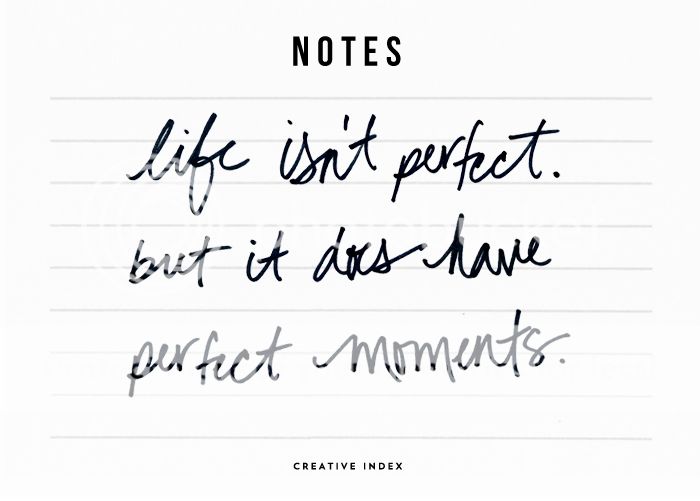 NOTES
life isn't perfect.
but it does have
perfect moments.
CREATIVE INDEX